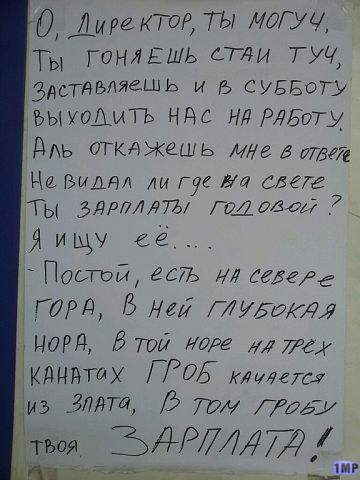 О, Директор, ты могуч,
Ты гоняешь стаи туч,
Заставляешь и в субботу
выходить нас на работу.
Аль откажешь мне в ответе
Не видал ли где на свете
Ты зарплаты годовой?
Я ищу её....
- Постой, есть на севере
гора, в ней глубокая
нора, в той норе на трёх
канатах ГРОБ качается
из злата, в том гробу
твоя ЗАРПЛАТА!
1MP